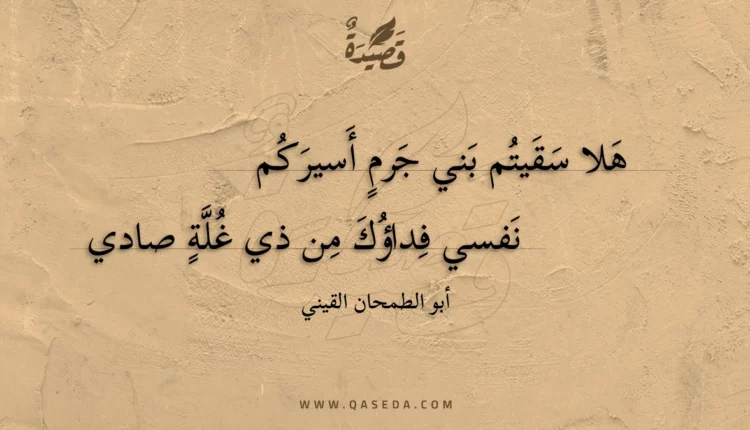 قَصِيدَةٌ
هَلا سَقَيتُم بَني جَرمٍ أَسيرَكُم
نَفسي فِداؤُكَ مِن ذي غُلَّةٍ صادي
أبو الطمحان القيني
WWW.QASEDA.COM